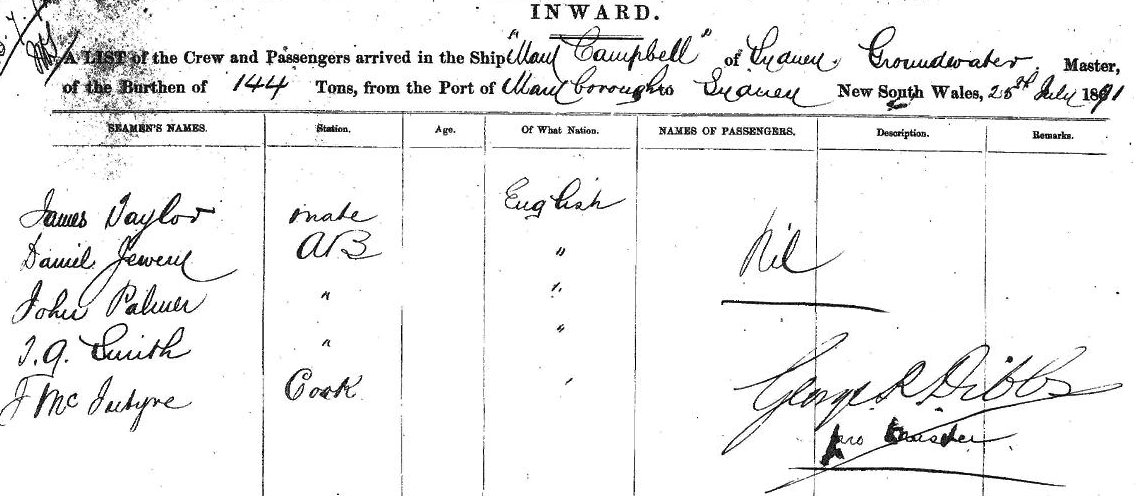 INWARD.
A LIST of the Crew and Passengers arrived in the Ship "Mary Campbell" of Sydney, Groundwater, Master,
of the Burthen of 144 Tons, from the Port of Maryborough to Sydney New South Wales, 25th July 1891
SEAMEN'S NAMES. Station. Age. Of What Nation. NAMES OF PASSENGERS. Description. Remarks.
James Taylor mate English
Daniel AB " Nil
John Palmer " "
T.G. Smith " "
J McIntyre Cook " George R Dibbs
pro Master